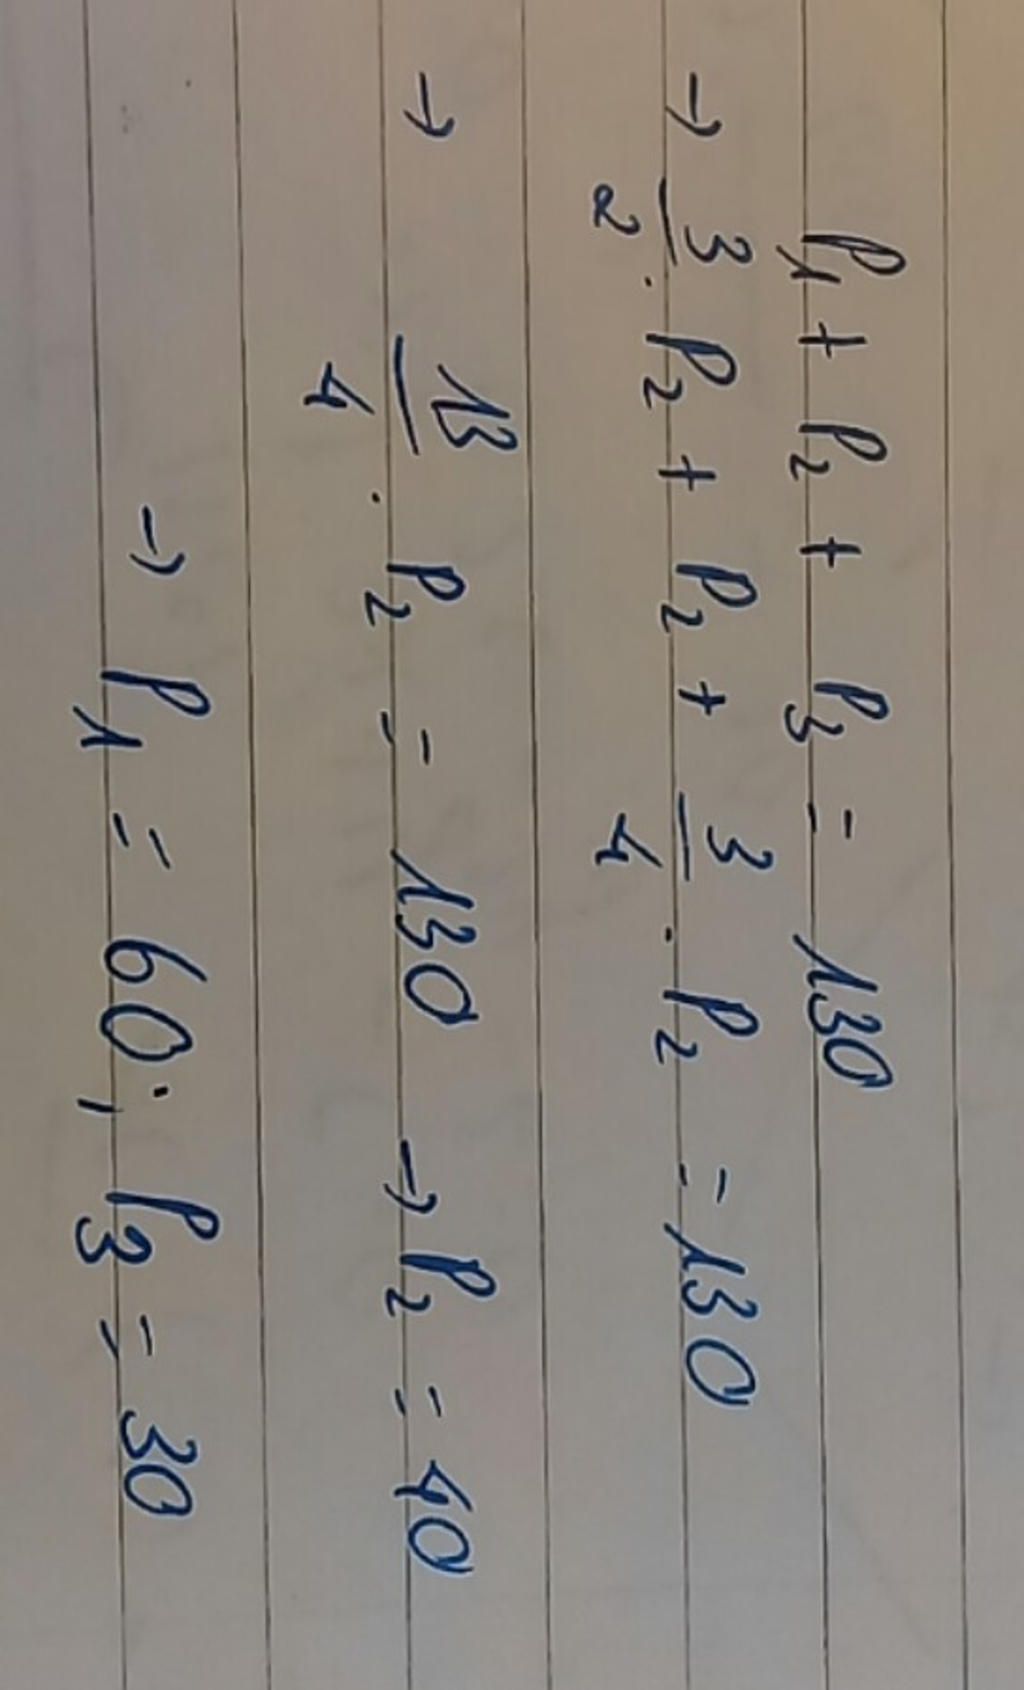 P₁ + P₂ + P₃ = 130
→ 3/2 · P₂ + P₂ + 3/4 · P₂ = 130
→ 13/4 · P₂ = 130 → P₂ = 40
→ P₁ = 60; P₃ = 30